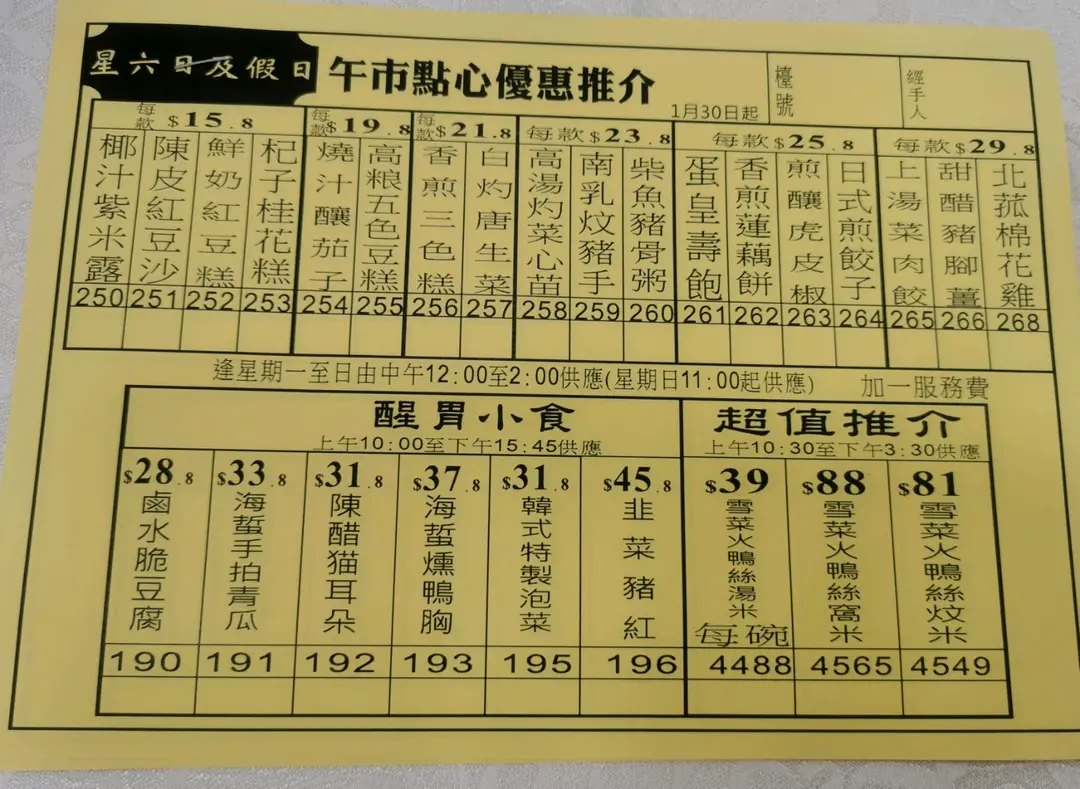 星六日及假日 午市點心優惠推介 1月30日起 檯號 經手人
每款$15.8 每款$19.8 每款$21.8 每款$23.8 每款$25.8 每款$29.8
椰汁紫米露 陳皮紅豆沙 鮮奶紅豆糕 杞子桂花糕 燒汁釀茄子 高粮五色豆糕 香煎三色糕 白灼唐生菜 高湯灼菜心苗 南乳炆豬手 柴魚豬骨粥 蛋皇壽飽 香煎蓮藕餅 煎釀虎皮椒 日式煎餃子 上湯菜肉餃 甜醋豬腳薑 北菰棉花雞
250 251 252 253 254 255 256 257 258 259 260 261 262 263 264 265 266 268
逢星期一至日由中午12:00至2:00供應(星期日11:00起供應) 加一服務費
醒胃小食 超值推介
上午10:00至下午15:45供應 上午10:30至下午3:30供應
$28.8 $33.8 $31.8 $37.8 $31.8 $45.8 $39 $88 $81
鹵水脆豆腐 海蜇手拍青瓜 陳醋猫耳朵 海蜇燻鴨胸 韓式特製泡菜 韭菜豬紅 雪菜火鴨絲湯米每碗 雪菜火鴨絲窩米 雪菜火鴨絲炆米
190 191 192 193 195 196 4488 4565 4549